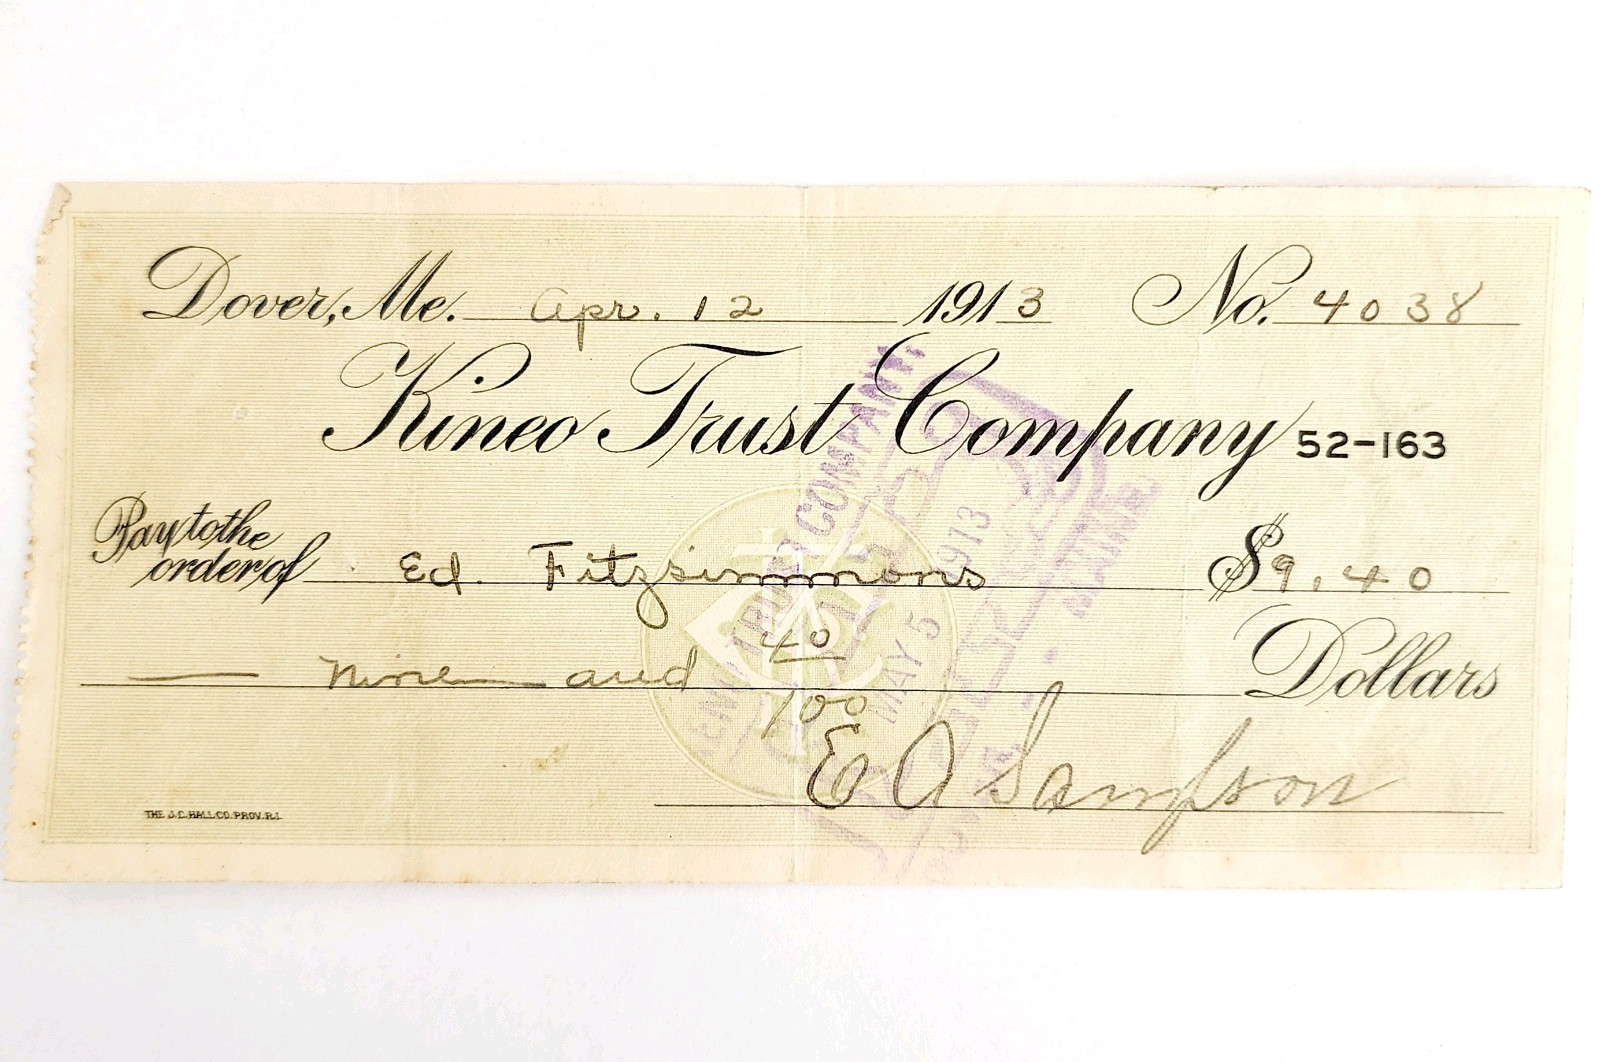 Dover, Me. Apr. 12 1913 No. 4038
Kineo Trust Company 52-163
Pay to the order of Ed Fitzsimmons $9.40
Nine and 40/100 Dollars
E A Sampson
THE J.C. HALL CO. PROV. R.I.
TRUST COMPANY
PAID
MAY 5 1913
MAINE